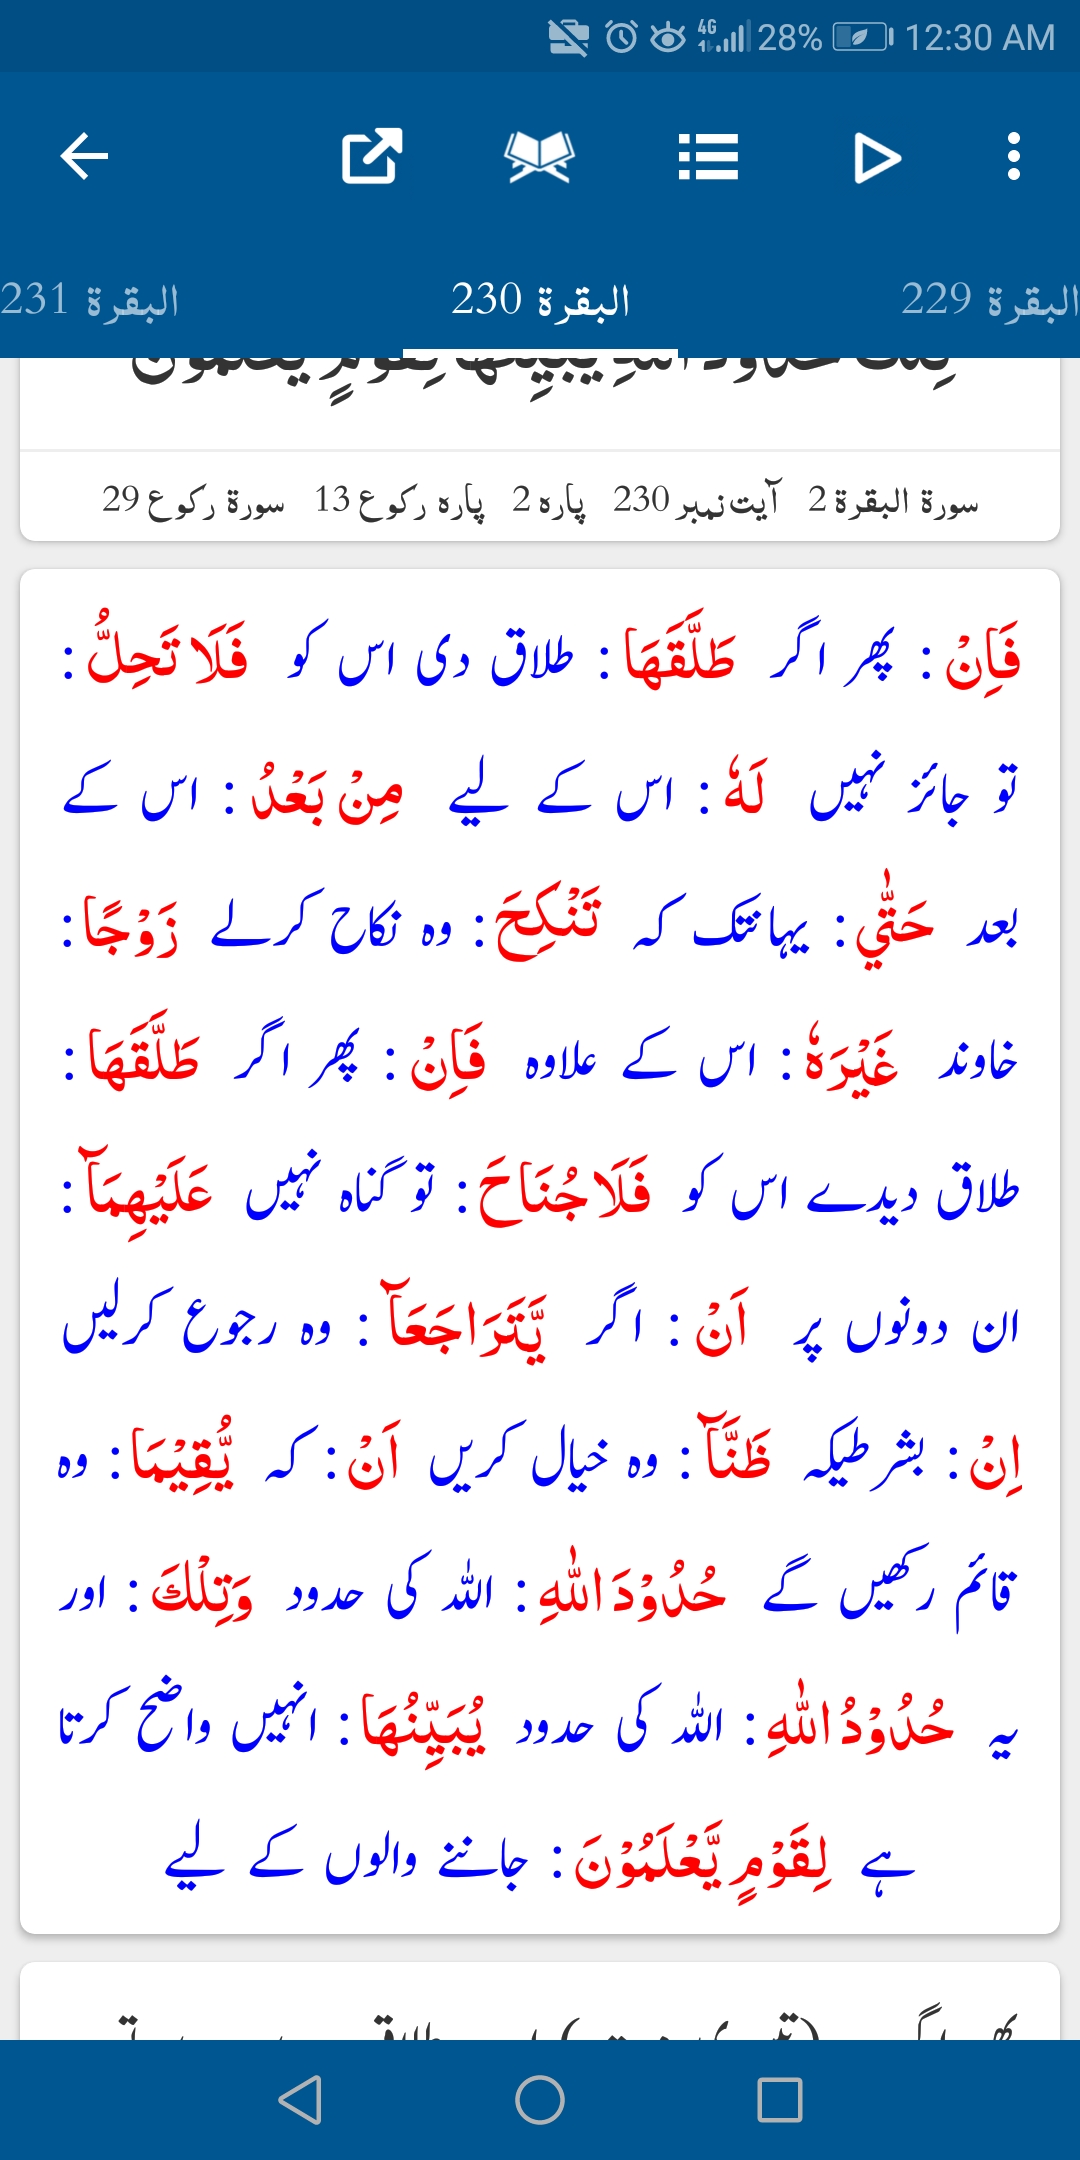 28% 12:30 AM
البقرة 229 البقرة 230 البقرة 231
تِلْكَ حُدُوْدُ اللّٰهِ يُبَيِّنُهَا لِقَوْمٍ يَّعْلَمُوْنَ
سورۃ البقرۃ 2 آیت نمبر 230 پارہ 2 پارہ رکوع 13 سورۃ رکوع 29
فَاِنْ : پھر اگر طَلَّقَھَا : طلاق دی اس کو فَلَا تَحِلُّ :
تو جائز نہیں لَهٗ : اس کے لیے مِنْۢ بَعْدُ : اس کے
بعد حَتّٰي : یہانتک کہ تَنْكِحَ : وہ نکاح کرلے زَوْجًا :
خاوند غَيْرَهٗ : اس کے علاوہ فَاِنْ : پھر اگر طَلَّقَھَا :
طلاق دیدے اس کو فَلَاجُنَاحَ : تو گناہ نہیں عَلَيْھِمَآ :
ان دونوں پر اَنْ : اگر يَّتَرَاجَعَآ : وہ رجوع کرلیں
اِنْ : بشرطیکہ ظَنَّآ : وہ خیال کریں اَنْ : کہ يُّقِيْمَا : وہ
قائم رکھیں گے حُدُوْدَ اللّٰهِ : اللہ کی حدود وَتِلْكَ : اور
یہ حُدُوْدُ اللّٰهِ : اللہ کی حدود يُبَيِّنُھَا : انہیں واضح کرتا
ہے لِقَوْمٍ يَّعْلَمُوْنَ : جاننے والوں کے لیے